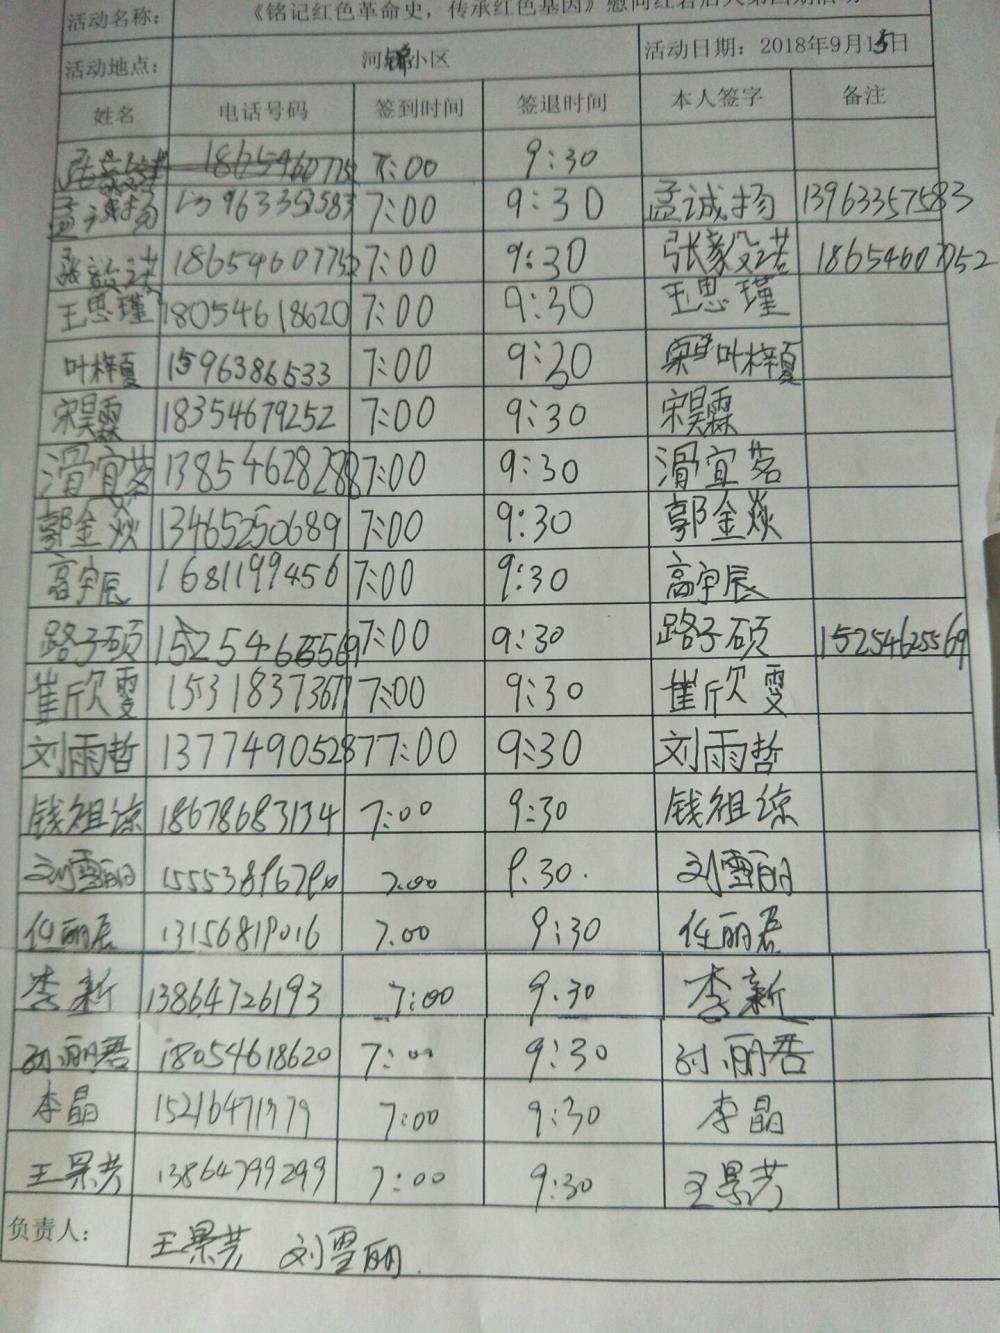 活动名称： 《铭记红色革命史，传承红色基因》慰问红军后人第四期活动
活动地点： 河锦小区 活动日期：2018年9月15日
姓名 电话号码 签到时间 签退时间 本人签字 备注
18654607752 7:00 9:30
孟诚扬 13963357583 7:00 9:30 孟诚扬 13963357583
18654607752 7:00 9:30 18654607752
王思瑾 18054618620 7:00 9:30 王思瑾
叶梓夏 1596386533 7:00 9:30 叶梓夏
宋昊霖 18354679252 7:00 9:30 宋昊霖
滑宜茗 13854628288 7:00 9:30 滑宜茗
郭金焱 13465250689 7:00 9:30 郭金焱
高宇辰 1681199456 7:00 9:30 高宇辰
路子硕 7:00 9:30 路子硕 15254625569
崔欣雯 15318373677 7:00 9:30 崔欣雯
刘雨哲 13774905287 7:00 9:30 刘雨哲
钱祖谅 18678683134 7:00 9:30 钱祖谅
刘雪丽 7:00 9.30. 刘雪丽
任丽君 13156819016 7.00 9:30 任丽君
李新 13864726193 7:00 9.30 李新
刘丽君 18054618620 7:00 9:30 刘丽君
李晶 7:00 9:30 李晶
王景芳 13864799299 7:00 9:30 王景芳
负责人： 王景芳 刘雪丽.